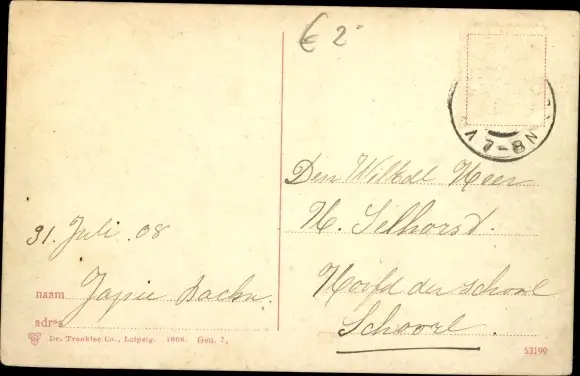 € 2
V 7-8 N
Den WelEdel Heer
H. Selhorst.
Hoofd der school
Schoorl.
31. Juli. 08
naam Japie
adres
Dr. Trenkler Co., Leipzig. 1906. Geu. 7.
53190